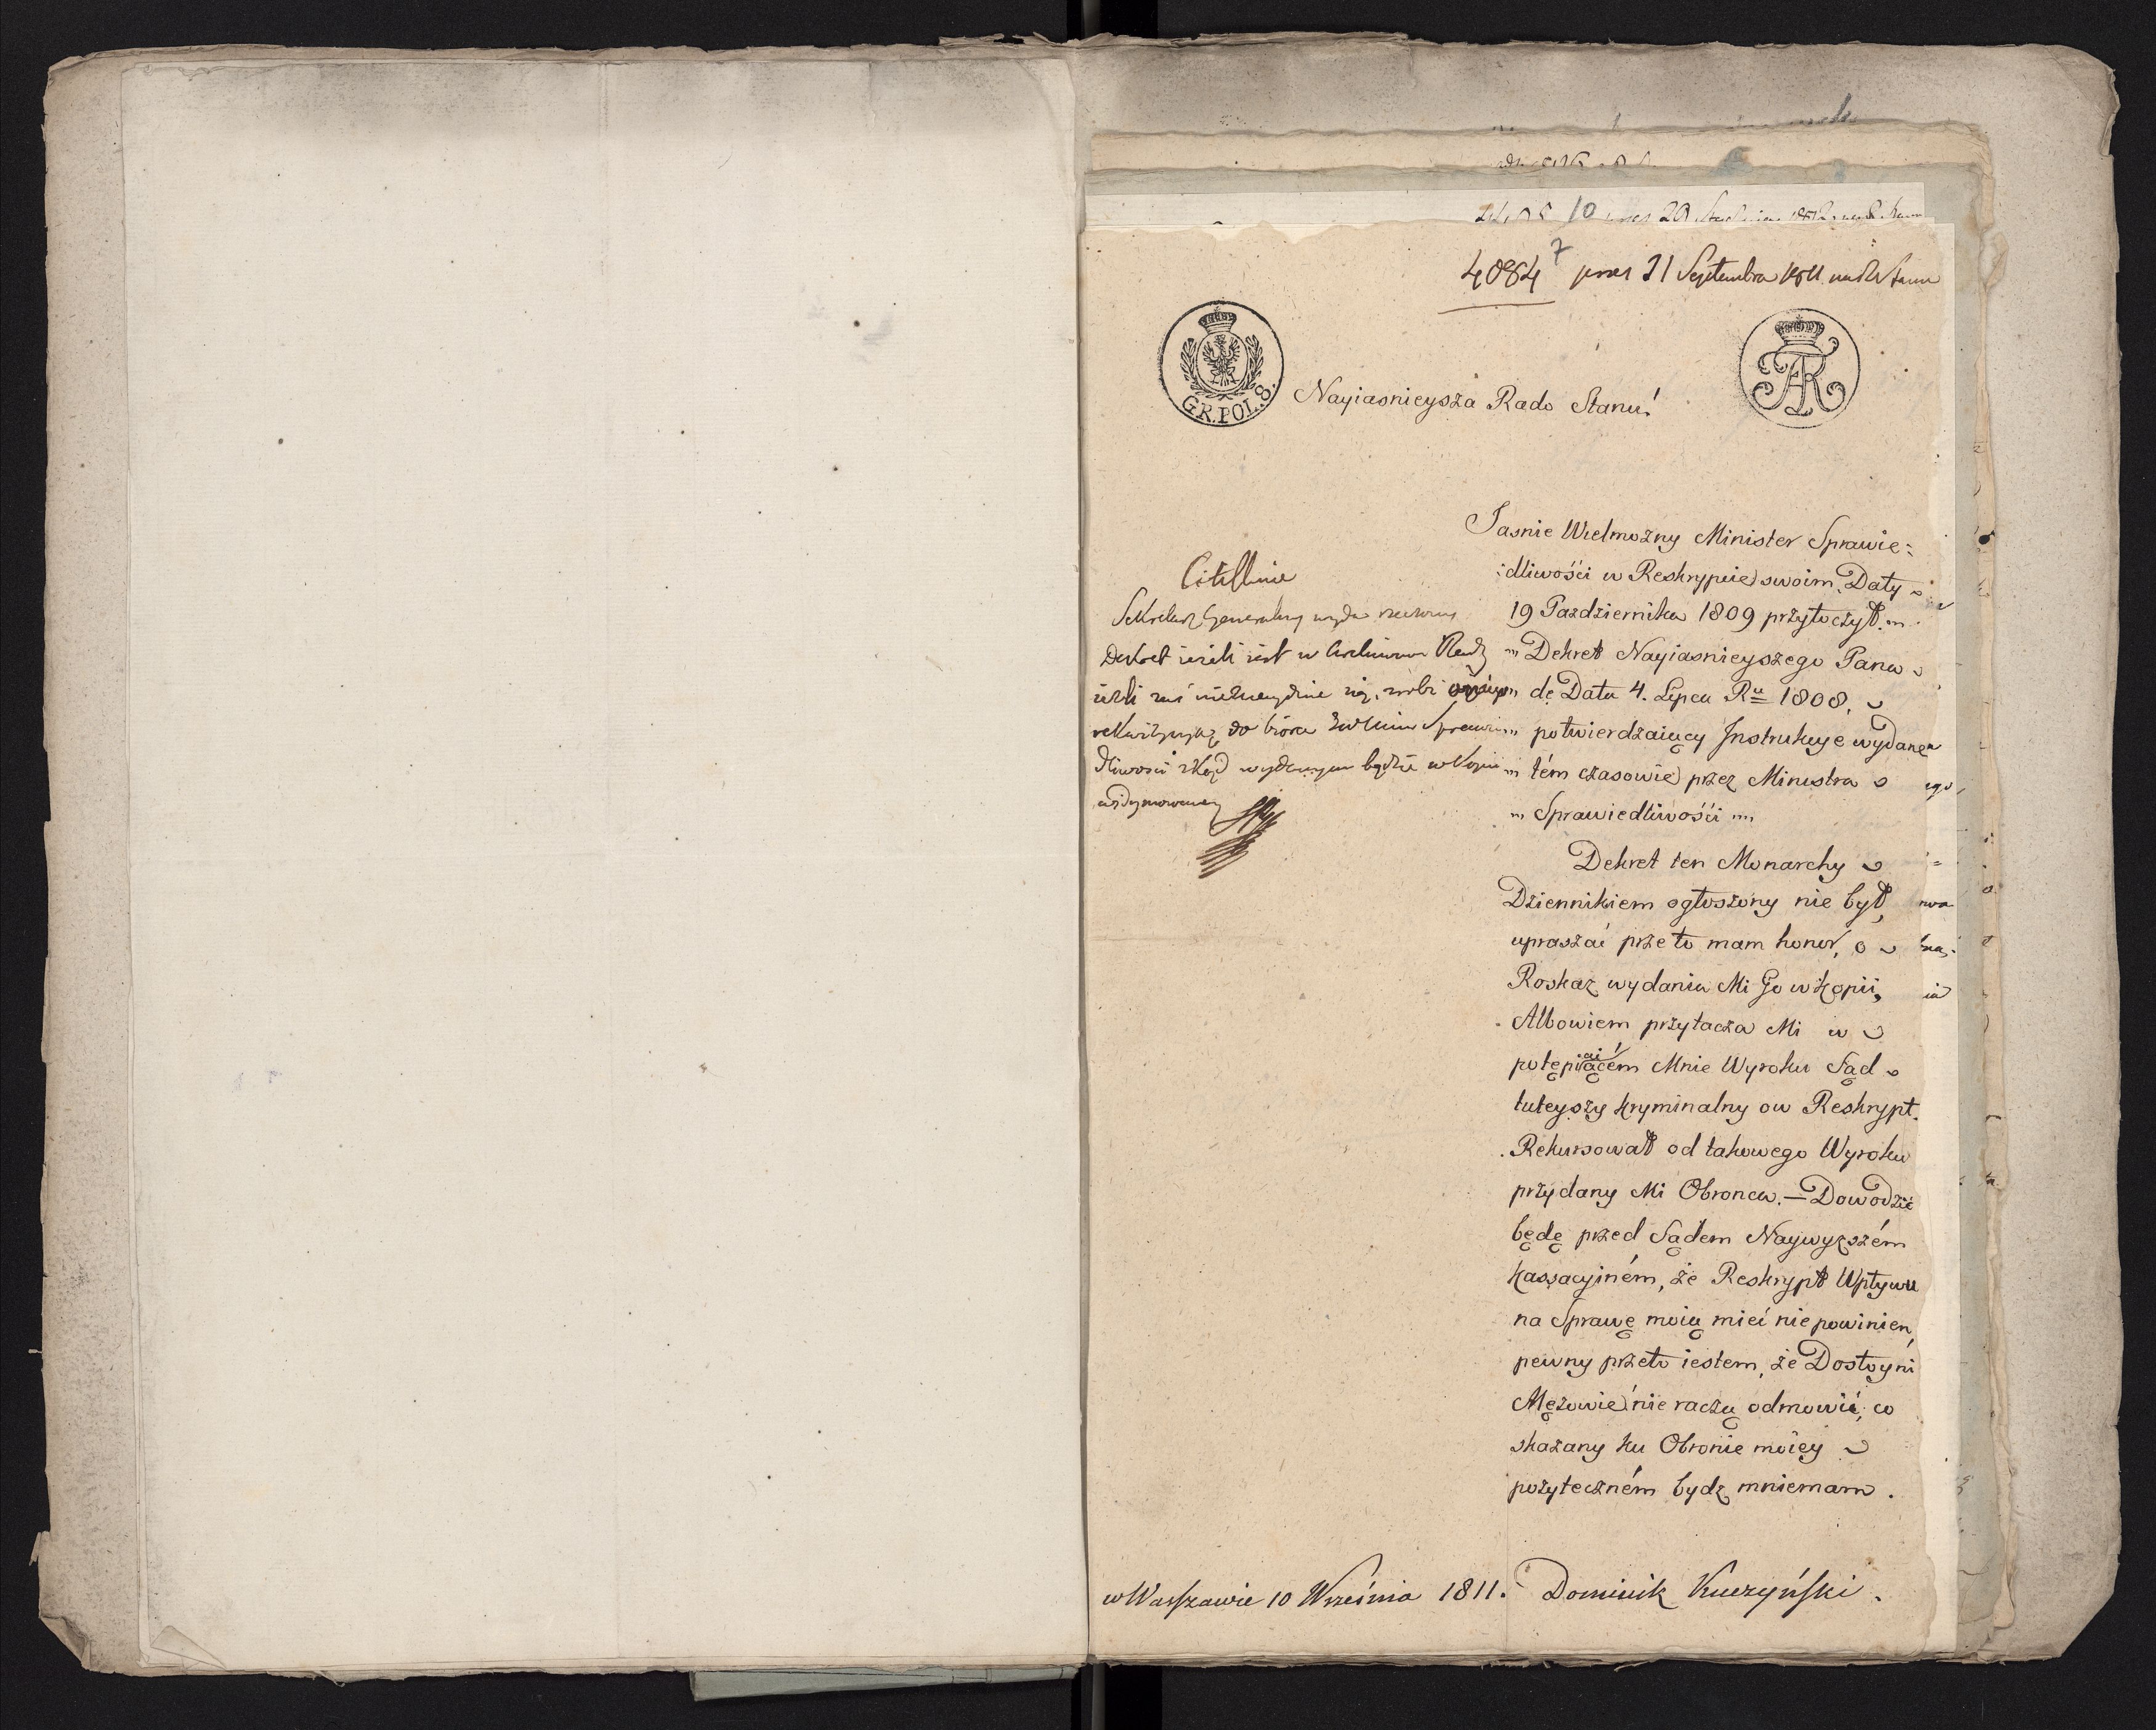 4084 7 praes 21 Septembra 1811
GR.POL.8.
Nayiasnieysza Rado Stanu!
Jasnie Wielmożny Minister Sprawie:
:dliwości w Reskrypcie swoim, Daty
19 Pazdziernika 1809 przytoczył „„
„„ Dekret Nayiasnieyszego Pana
„„ de Data 4. Lipca Ru 1808,
„„ potwierdzaiący Instrukcye wydaną
„„ tém czasowie przez Ministra
„„ Sprawiedliwośći „„
Dekret ten Monarchy
Dziennikiem ogłoszony nie był,
upraszać przeto mam honor, o
Roskaz wydania Mi Go w kopii,
Albowiem przytacza Mi w
potępiaiącém Mnie Wyroku Sąd
tuteyszy kryminalny ow Reskrypt.
Rekursował od takowego Wyroku
przydany Mi Obronca. — Dowodzić
będę przed Sądem Naywyższém
kassacyiném, że Reskrypt Wpływu
na Sprawę moią mieć nie powinien,
pewny przeto iestem, że Dostoyni
Mężowie nie raczą odmowić, co
skazany ku Obronie moiey
pożyteczném bydz mniemam.
Sekretarz Generalny wyda
Dekret ieżeli iest w Archiwum Rady
ieżli zaś nieznaydzie się, zrobi
do biora Sprawie
dliwosci zkąd wydanym będzie w Kopii
widymowaney
w Warszawie 10 Wrześnio 1811. Dominik Kuczyński.